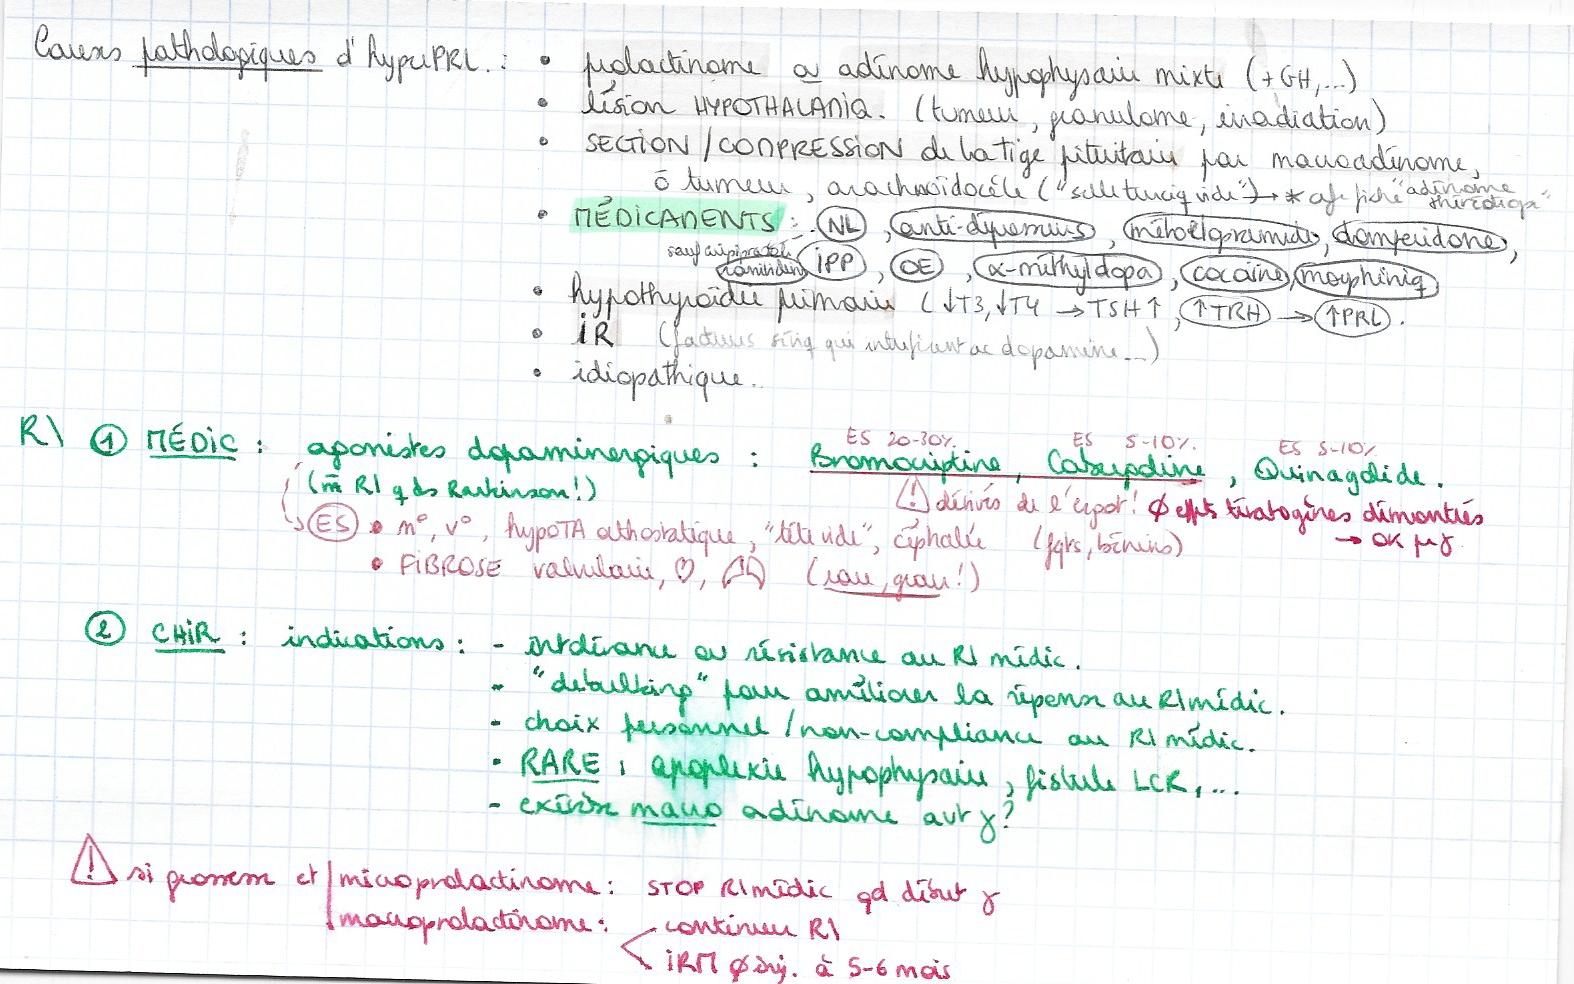 Causes pathologiques d'hyperPRL. : • prolactinome ou adénome hypophysaire mixte (+GH,...)
• lésion HYPOTHALAMIQ. (tumeur, granulome, irradiation)
• SECTION / COMPRESSION de la tige pituitaire par macroadénome,
ō tumeur, arachnoïdocèle ("selle turciq vide") → * cfr fiche "adénome
thyréotrope"
• MÉDICAMENTS : NL, anti-dépresseurs, métoclopramide, dompéridone,
sauf
ranitidine IPP, OE, α-méthyldopa, cocaïne, morphiniq
• hypothyroïdie primaire (↓T3, ↓T4 → TSH↑, ↑TRH → ↑PRL).
• IR (facteurs qui interfèrent ac dopamine...)
• idiopathique..
R\ ① MÉDIC : agonistes dopaminergiques : Bromocriptine, Cabergoline, Quinagolide.
ES 20-30% ES 5-10% ES 5-10%
(m̄ R\ q ds Parkinson!) ⚠ dérivés de l'ergot! ∅ effets tératogènes démontrés
→ OK pr γ
ES • n°, v°, hypoTA orthostatique, "tête vide", céphalée (fqts, bénins)
• FIBROSE valvulaire, ♡, (rare, grave!)
② CHIR : indications : - intolérance ou résistance au R\ médic.
- "debulking" pour améliorer la réponse au R\ médic.
- choix personnel / non-compliance au R\ médic.
- RARE : apoplexie hypophysaire, fistule LCR,...
- exérèse macroadénome avt γ?
⚠ si grossesse et | microprolactinome : STOP R\ médic qd début γ
macroprolactinome : < continuer R\
IRM ∅ inj. à 5-6 mois